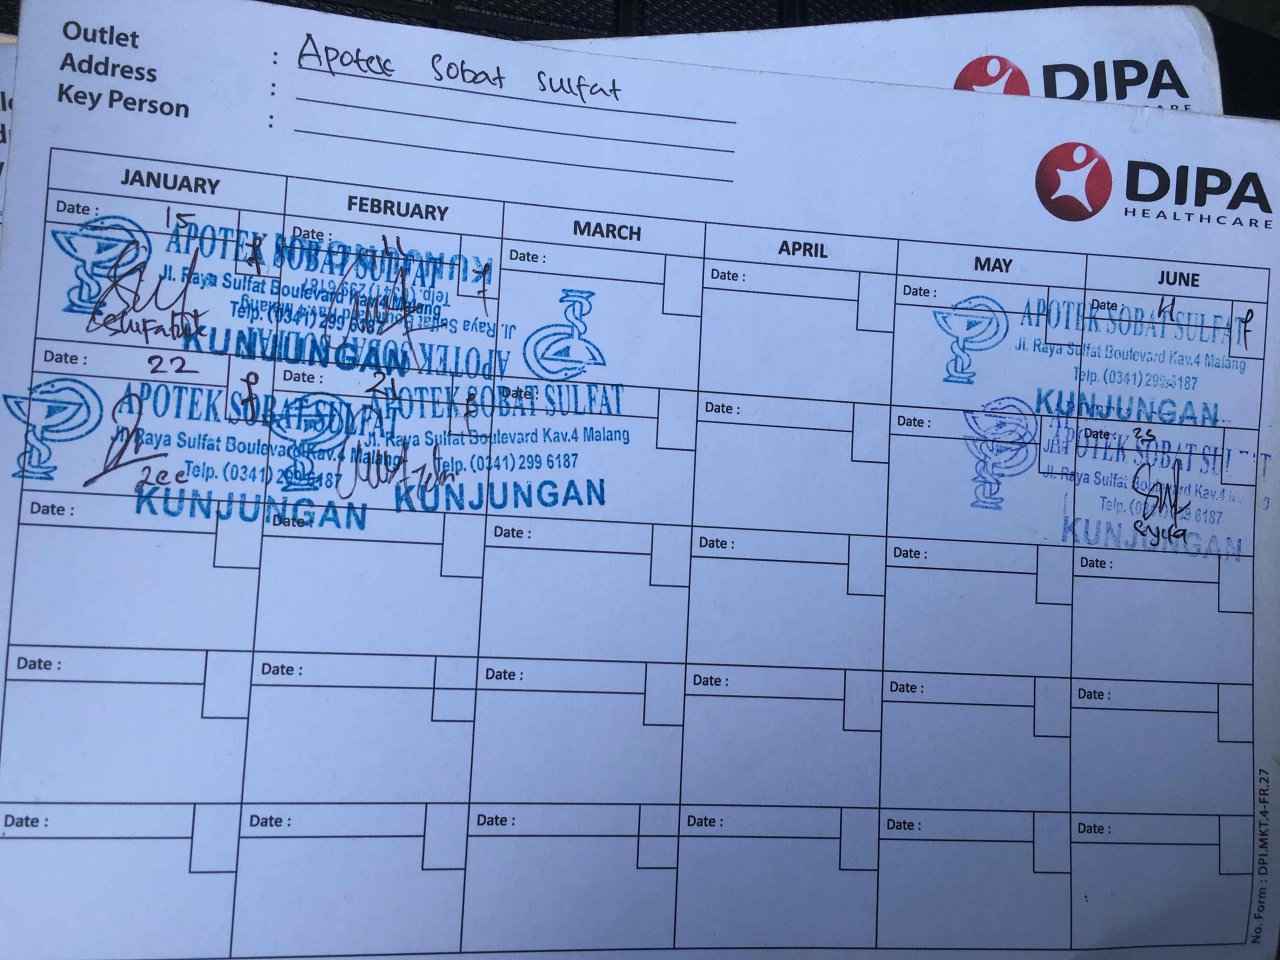 Outlet : Apotek Sobat Sulfat
Address :
Key Person :
DIPA
DIPA
HEALTHCARE
JANUARY FEBRUARY MARCH APRIL MAY JUNE
Date : 15 Date : 11 Date : Date : Date : Date :
APOTEK SOBAT SULFAT
Jl. Raya Sulfat Boulevard Kav.4 Malang
Telp. (0341) 299 6187
KUNJUNGAN
APOTEK SOBAT SULFAT
Jl. Raya Sulfat Boulevard Kav.4 Malang
Telp. (0341) 299 6187
KUNJUNGAN
APOTEK SOBAT SULFAT
Jl. Raya Sulfat Boulevard Kav.4 Malang
Telp. (0341) 299 6187
KUNJUNGAN
Date : 22 Date : 21 Date : Date : Date : Date : 25
APOTEK SOBAT SULFAT
Jl. Raya Sulfat Boulevard Kav.4 Malang
Telp. (0341) 299 6187
KUNJUNGAN
zee
APOTEK SOBAT SULFAT
Jl. Raya Sulfat Boulevard Kav.4 Malang
Telp. (0341) 299 6187
KUNJUNGAN
APOTEK SOBAT SUL
Jl. Raya Sulfat Boulevard Kav.4
Telp. (0341) 299 6187
KUNJUNGAN
Date : Date : Date : Date : Date : Date :
Date : Date : Date : Date : Date : Date :
Date : Date : Date : Date : Date : Date :
No. Form : DPI.MKT.4-FR.27